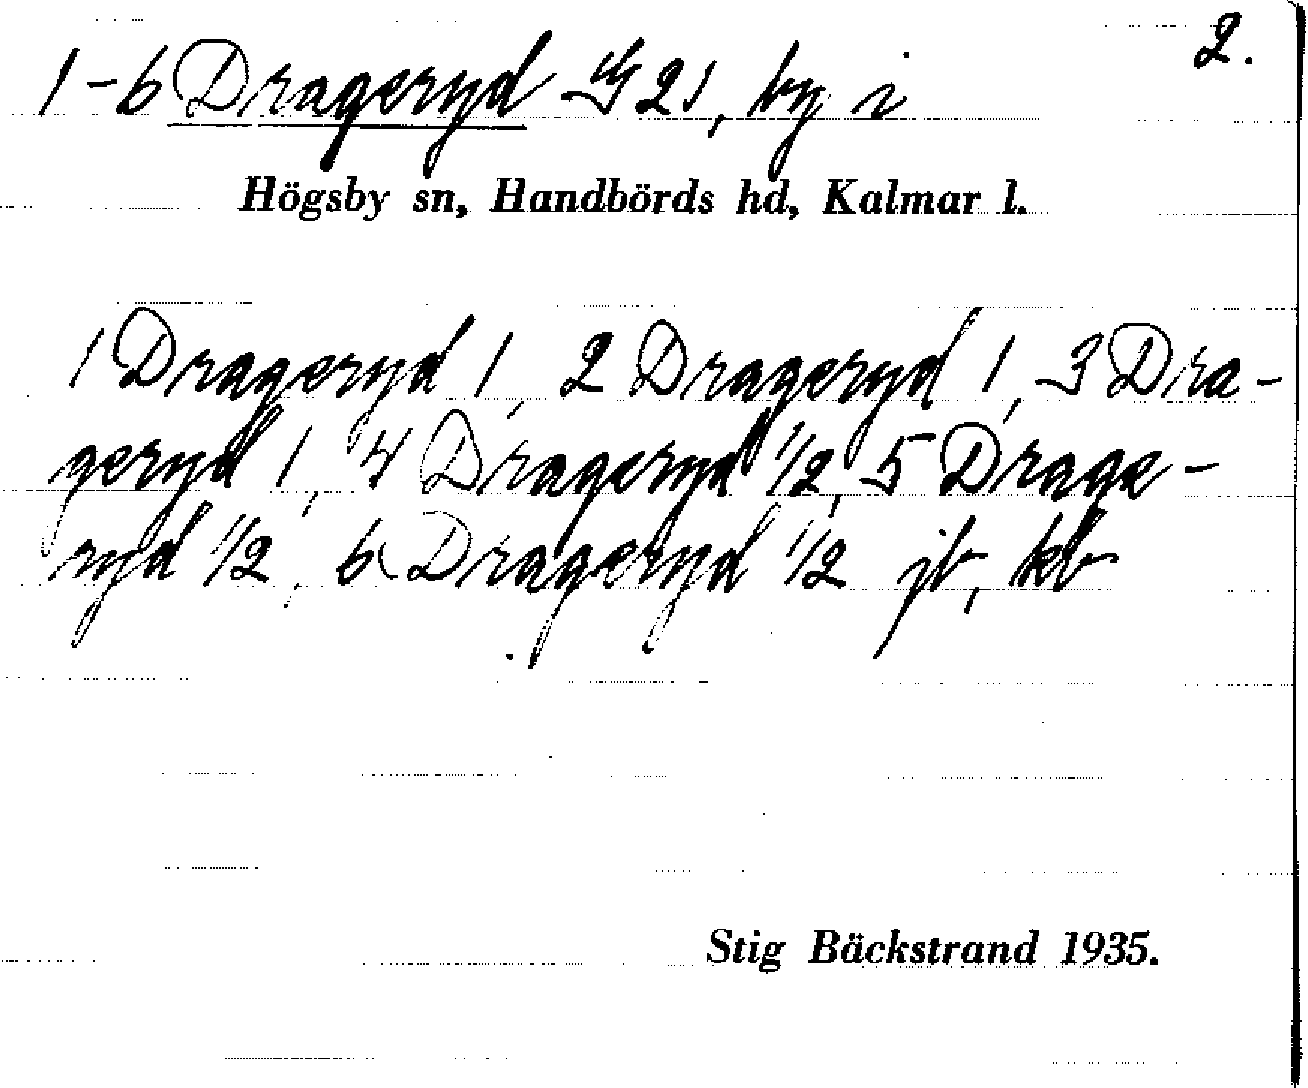 2.
1-6 Drageryd G 21, by i
Högsby sn, Handbörds hd, Kalmar l.
1 Drageryd 1, 2 Drageryd 1, 3 Dra-
geryd 1, 4 Drageryd 1/2, 5 Drage-
ryd 1/2, 6 Drageryd 1/2 jb, kb
Stig Bäckstrand 1935.